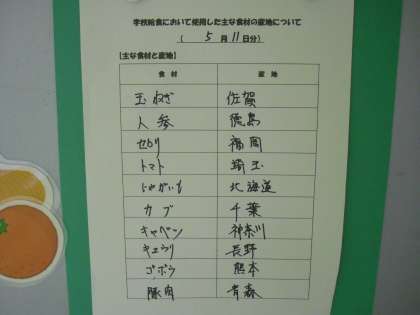 学校給食において使用した主な食材の産地について
( 5月11日分)
【主な食材と産地】
食材 産地
玉ねぎ 佐賀
人参 徳島
セロリ 福岡
トマト 埼玉
じゃがいも 北海道
カブ 千葉
キャベツ 神奈川
キュウリ 長野
ゴボウ 熊本
豚肉 青森